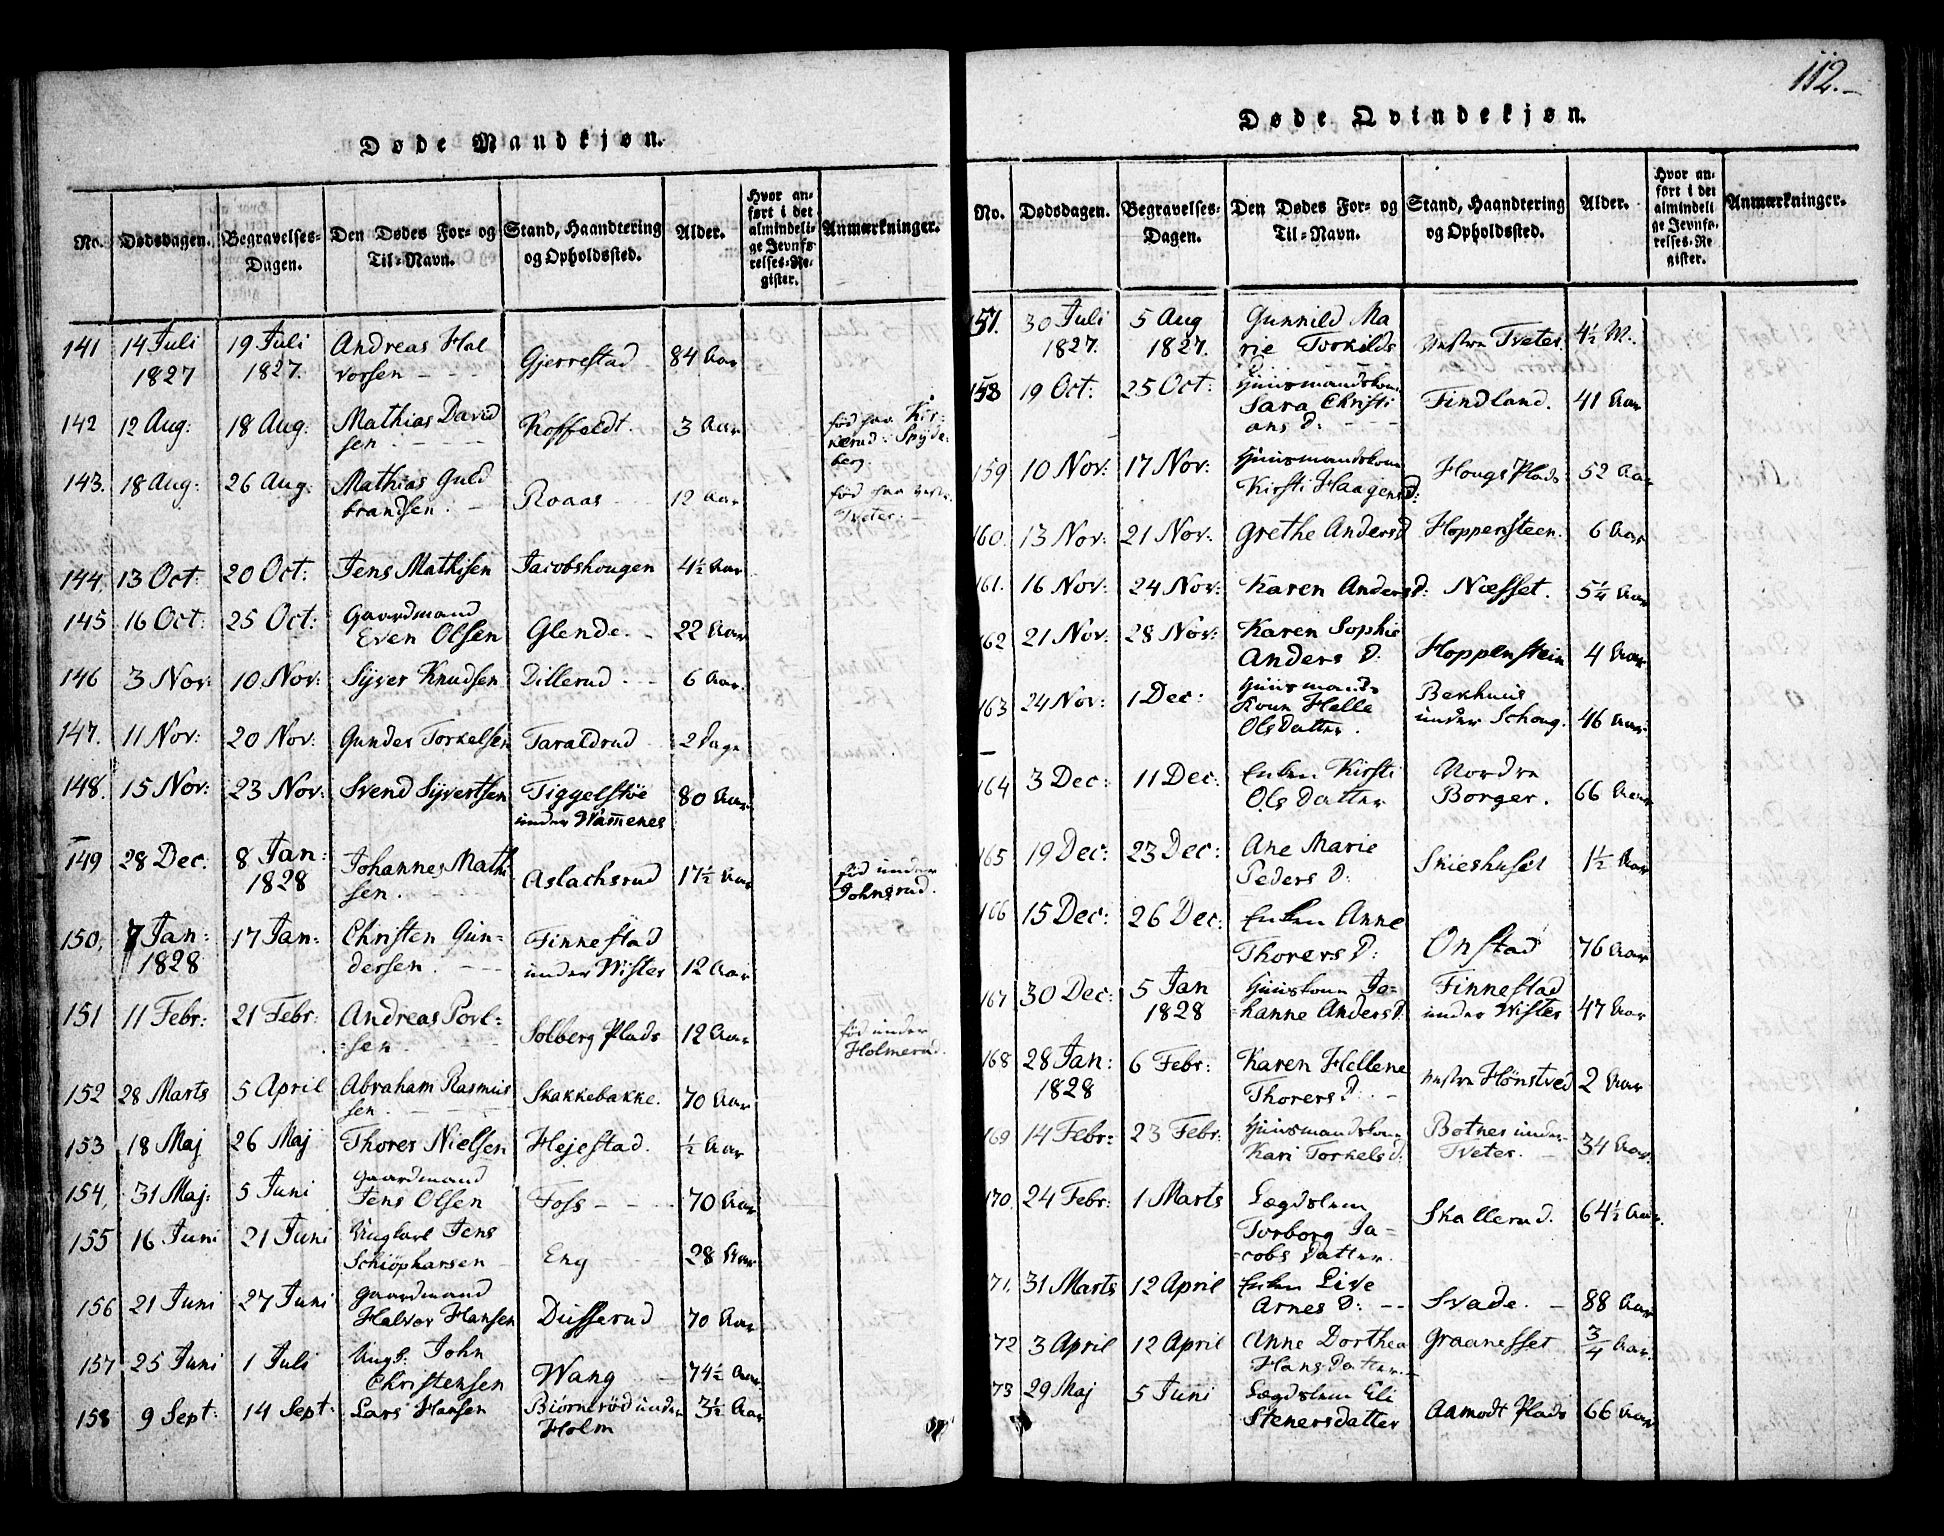 112.
Døde Mandkjøn.
No. Dødsdagen. Begravelses-Dagen. Den Dødes For- og Til-Navn. Stand, Haandtering og Opholdssted. Alder. Hvor anført i det almindelige Jevnførelses-Register. Anmærkninger.
141 14 Juli 1827 19 Juli 1827. Andreas Halvorsen - - - Gjerrestad 84 Aar
142 12 Aug: 18 Aug: Mathias Davidsen Koffeldt. 3 Aar fød paa Kirkerud: Spydeberg.
143. 18 Aug: 26 Aug: Mathias Guldbrandsen. - Roaas 12 Aar fød paa Tveter.
144. 13 Oct: 20 Oct: Jens Mathisen Jacobshougen 4½ Aar
145 16 Oct: 25 Oct: Gaardmand Even Olsen Glende. - 22 Aar
146 3 Nov: 10 Nov: Syver Knudsen Dillerud - - 6 Aar.
147. 11 Nov: 20 Nov: Gunder Torkelsen Taraldrud 2 Dage
148. 15 Nov: 23 Nov: Svend Syvertsen Tiggelstøe under Wamenes 80 Aar
149 28 Dec: 8 Jan: 1828 Johannes Mathisen. Aslachsrud 17½ Aar fød under Johnsrud.
150, 7 Jan: 1828 17 Jan- Christen Gundersen. - - - Finnestad under Wister 12 Aar
151 11 Febr: 21 Febr: Andreas Povl-sen. Solberg Plads 12 Aar fød under Holmerud.
152 28 Marts 5 April Abraham Rasmussen. Skakkebakke. 70 Aar
153 18 Maj 26 Maj Thorer Nielsen Hejestad. ½ Aar
154, 31 Maj: 5 Juni Gaardmand Jens Olsen Foss - - - 70 Aar
155 16 Juni 21 Juni Ungkarl Jens Schiøpharsen - Eng 28 Aar
156 21 Juni 27 Juni Gaardmand Halvor Hansen Dusserud 70 Aar
157 25 Juni 1 Juli Ungk: John Christensen Wang 74½ Aar.
158 9 Sept: 14 Sept: Lars Hansen Biørnerød under Holm 3½ Aar
Døde Qvindekjøn.
No. Dødsdagen. Begravelses-Dagen. Den Dødes For- og Til-Navn. Stand, Haandtering og Opholdssted. Alder. Hvor anført i det almindelige Jevnførelses-Register. Anmærkninger.
157. 30 Juli 1827. 5 Aug 1827. Gunnild Marie Torkilds D Tveter. 4½ M:
158 19 Oct: 25 Oct: Huusmandskone Sara Christians D: - - - Findland. 41 Aar
159 10 Nov: 17 Nov: Huusmandskone Kirsti Haagens D: Hougs Plads 52 Aar
160. 13 Nov: 21 Nov: Grethe Anders D Hoppensteen. 6 Aar
161. 16 Nov: 24 Nov: Karen Anders D: Næsset. 5¼ Aar
162 21 Nov: 28 Nov: Karen Sophie Anders D: Hoppenstein 4 Aar
163 24 Nov: 1 Dec: Huusmands Kone Helle Ols Datter. Bekhuus under Schoug. 46 Aar
164 3 Dec: 11 Dec: Enken Kirsti Ols Datter Nordre Borger. 66 Aar
165 19 Dec: 23 Dec: Ane Marie Peders D: Snieshuset 1½ Aar
166 15 Dec: 26 Dec: Enken Anne Thorers D: Onstad 76 Aar
167 30 Dec: 5 Jan 1828 Huuskone Johanne Anders D: Finnestad under Wister 47 Aar
168 28 Jan: 1828 6 Febr: Karen Hellene Thorers D: - Hønstved 2 Aar
169 14 Febr: 23 Febr: Huusmandskone Kari Torkels D: Botner under Tveter. 34 Aar.
170. 24 Febr: 1 Marts Lægdslem Torborg Ja-cobs Datter. Skallerud. 64½ Aar.
71. 31 Marts 12 April Enken Live Arnes D: - - Svade. - 88 Aar
72 3 April 12 April Anne Dorthea Hans Datter. Graanesset ¾ Aar.
73 29 Maj 5 Juni Lægdslem Eli Stenersdatter Aamodt Plads 66 Aar